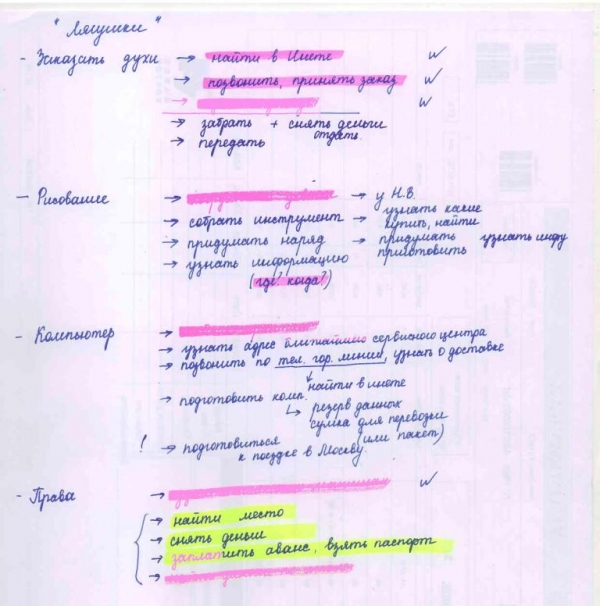 "Лягушки"
- Заказать духи → найти в Инете
→ позвонить, принять заказ
→
→ забрать + снять деньги
→ передать отдать
- Рисование → → у Н.В.
→ собрать инструмент → узнать какие купить, найти
→ придумать наряд → придумать узнать инфу приготовить
→ узнать информацию
(где? когда?)
- Компьютер →
→ узнать адрес ближайшего сервисного центра
→ позвонить по тел. гор. линии, узнать о доставке
найти в инете
→ подготовить комп.
резерв данных
сумка для перевозки
(или пакет)
! → подготовиться
к поездке в Москву.
- Права →
→ найти место
→ снять деньги
→ заплатить аванс, взять паспорт
→